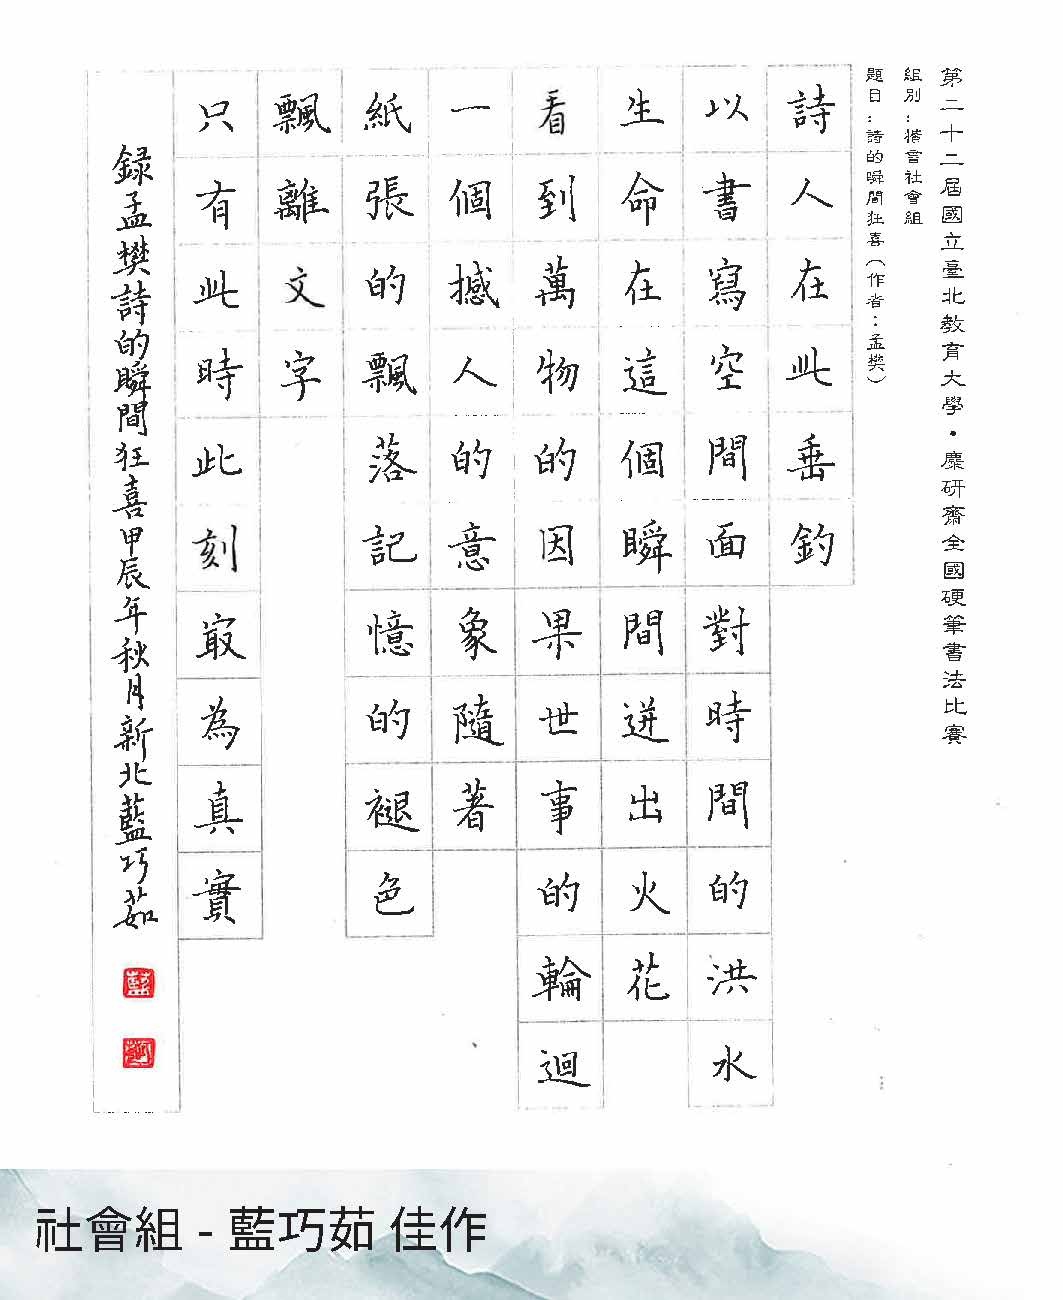 第二十二屆國立臺北教育大學・麋研齋全國硬筆書法比賽
組別：楷書社會組
題目：詩的瞬間狂喜（作者：孟樊）
詩人在此垂釣
以書寫空間面對時間的洪水
生命在這個瞬間迸出火花
看到萬物的因果世事的輪迴
一個撼人的意象隨著
紙張的飄落記憶的褪色
飄離文字
只有此時此刻最為真實
錄孟樊詩的瞬間狂喜甲辰年秋月新北藍巧茹
社會組 - 藍巧茹 佳作